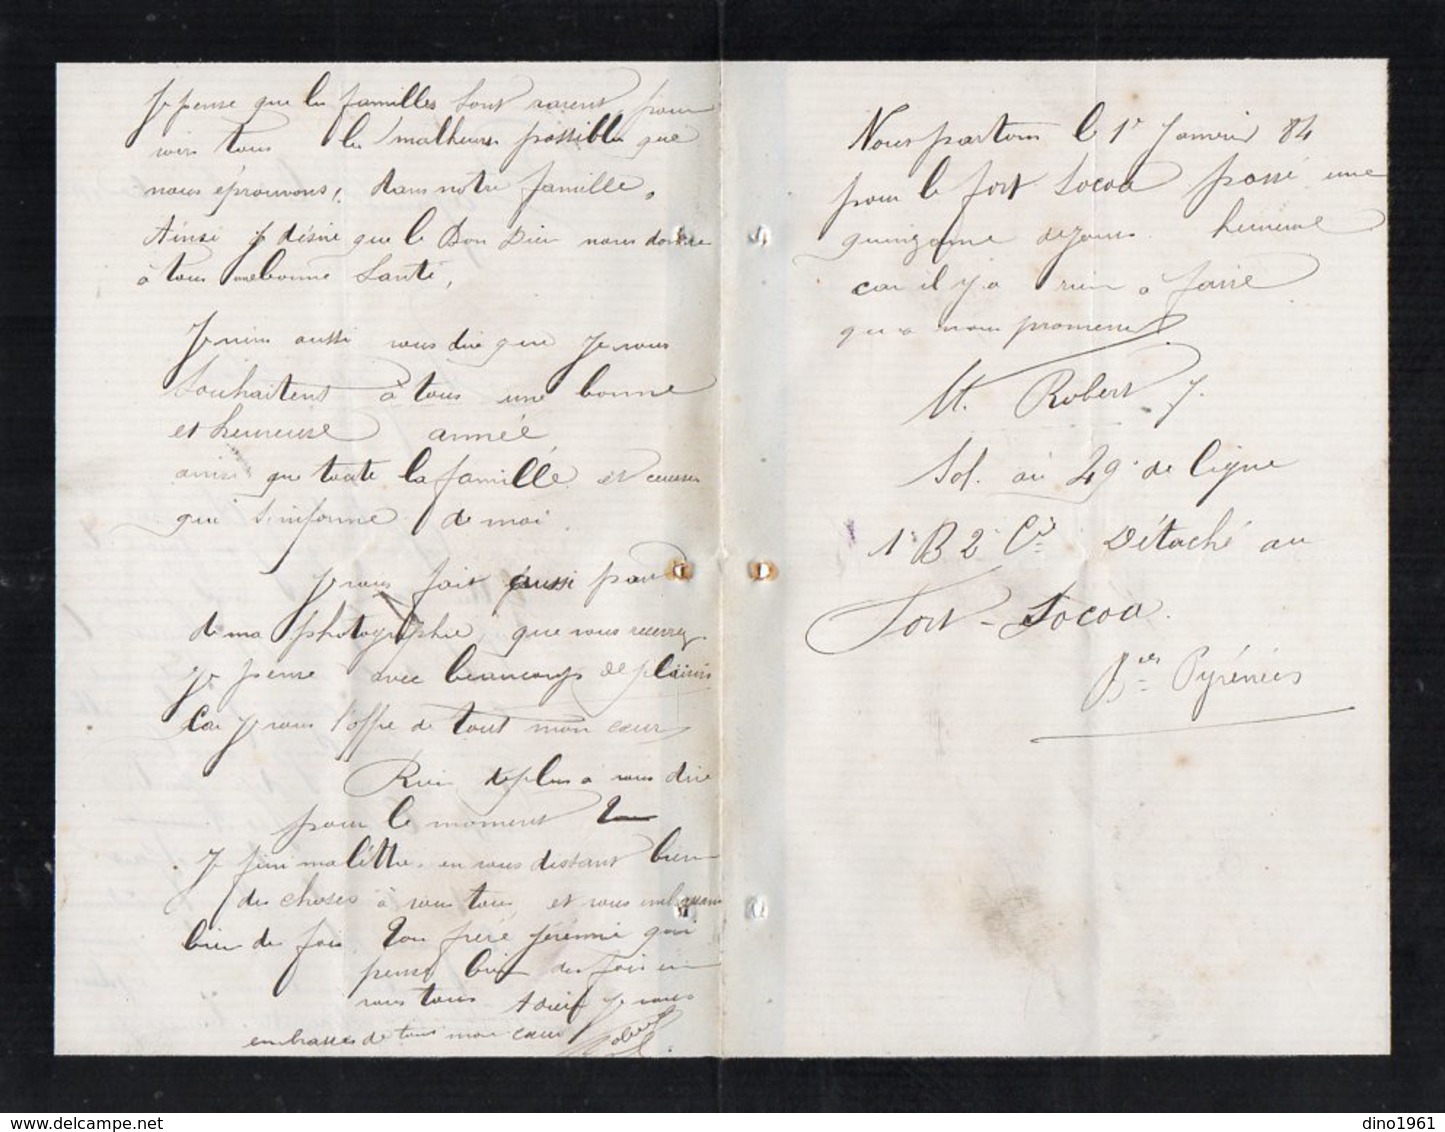 Je pense que les familles sont rarent, pour
voir tous les malheurs possibles que
nous éprouvons, dans notre famille,
Ainsi je désire que le Bon Dieu nous donne
à tous une bonne Santé,
Je viens aussi vous dire que je vous
Souhaitent à tous une bonne
et heureuse année
ainsi que toute la famille et ceuse
qui s'informe de moi.
Je vous fait aussi part
de ma photographie, que vous recevrez
je pense avec beaucoups de plaisirs
Car je vous l'offre de tout mon cœur
Rien de plus à vous dire
pour le moment
Je fini ma lettre en vous disant bien
des choses à vous tous et vous embrassant
bien des fois Ton frère Jérémie qui
pense bien des fois en
vous tous Adieu je vous
embrasse de tous mon cœur Robert
Nous partons le 1er Janvier 84
pour le fort Socoa passé une
quinzaine de jours heureuse
car il y a rien a faire
qu'a nous promener
Mr. Robert J.
Sol. au 49e de ligne
1e B 2e Cie Détaché au
Fort-Socoa.
Bses Pyrénées
dino1961